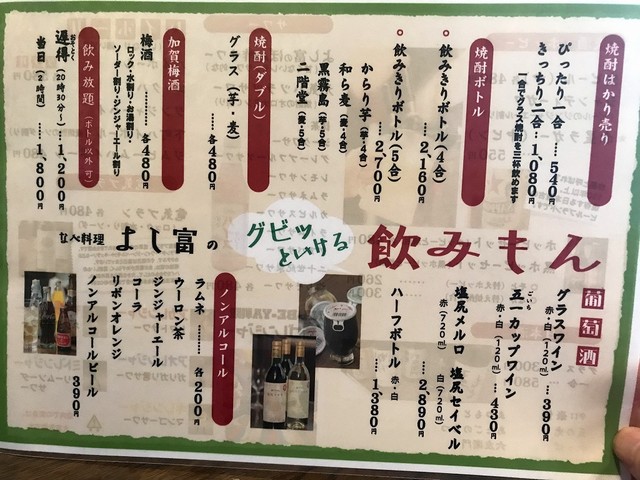 焼酎はかり売り
ぴったり一合……540円
きっちり二合…1,080円
一合でグラス焼酎を三杯飲めます
焼酎ボトル
飲みきりボトル(4合)
……2,160円
飲みきりボトル(5合)
……2,700円
からり芋(芋・4合)
和ら麦(麦・4合)
黒霧島(芋・5合)
二階堂(麦・5合)
焼酎(ダブル)
グラス(芋・麦)
……各480円
加賀梅酒
梅酒……各480円
ロック・水割り・お湯割り
ソーダー割り・ジンジャーエール割り
飲み放題(ボトル以外可)
遅得(20時30分〜)…1,200円
おそとく
当日(2時間)…1,800円
なべ料理 よし富の
グビッといける
飲みもん
葡萄酒
グラスワイン
赤・白(120ml)…390円
五一カップワイン
ごいち
赤・白(120ml)…430円
塩尻メルロ 塩尻セイベル
赤(720ml) 白(720ml)
……2,890円
ハーフボトル 赤・白
……1,380円
ノンアルコール
ラムネ……各200円
ウーロン茶
ジンジャーエール
コーラ
リボンオレンジ
ノンアルコールビール
390円